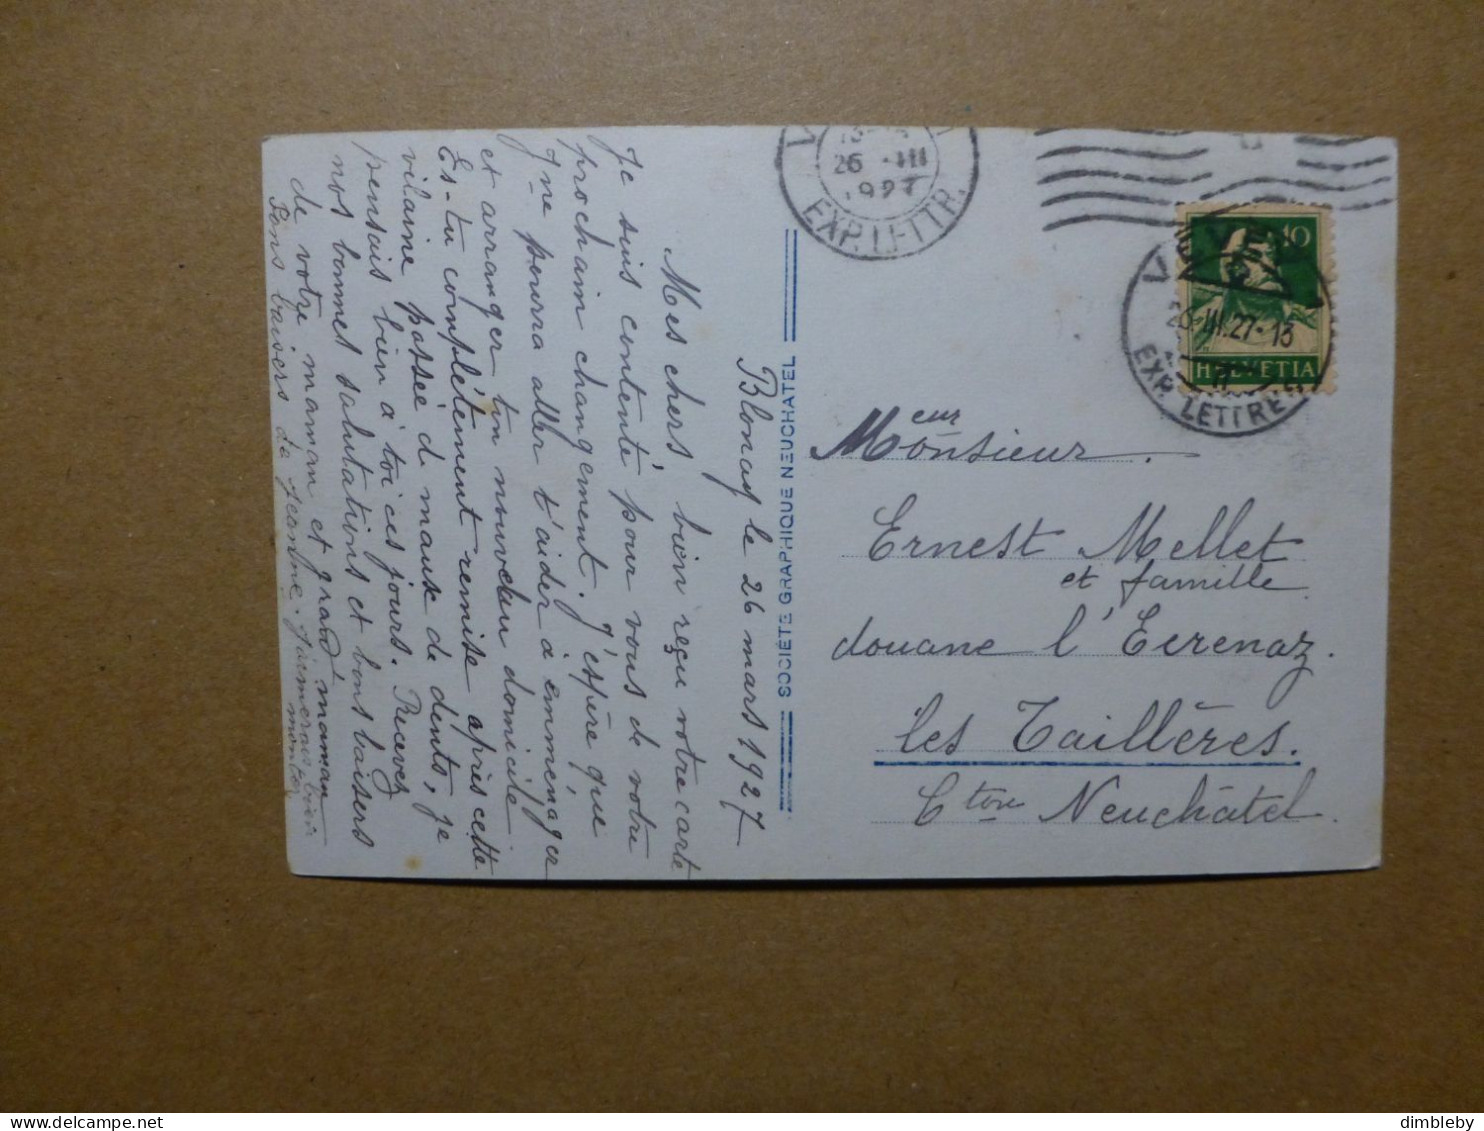 Blonay le 26 mars 1927
Mes chers bien reçu votre carte
Je suis contente pour vous de votre
prochain changement. J'espère que
J-ne pourra aller t'aider à emménager
et arranger ton nouveau domicile
Es-tu complètement remise après cette
vilaine passée de maux de dents, je
pensais bien à toi ces jours. Recevez
nos bonnes salutations et bons baisers
de votre maman et grand'maman
Bons baisers de Jeanne. J'aimerais bien
monter
SOCIÉTÉ GRAPHIQUE NEUCHATEL
26 III
1927
EXP. LETTR.
10
HELVETIA
VEVEY 1
26.III.27-13
EXP. LETTRES
Monsieur.
eur
Ernest Mellet
et famille
douane l'Ecrenaz.
les Taillères.
Cton Neuchâtel.
dimbleby